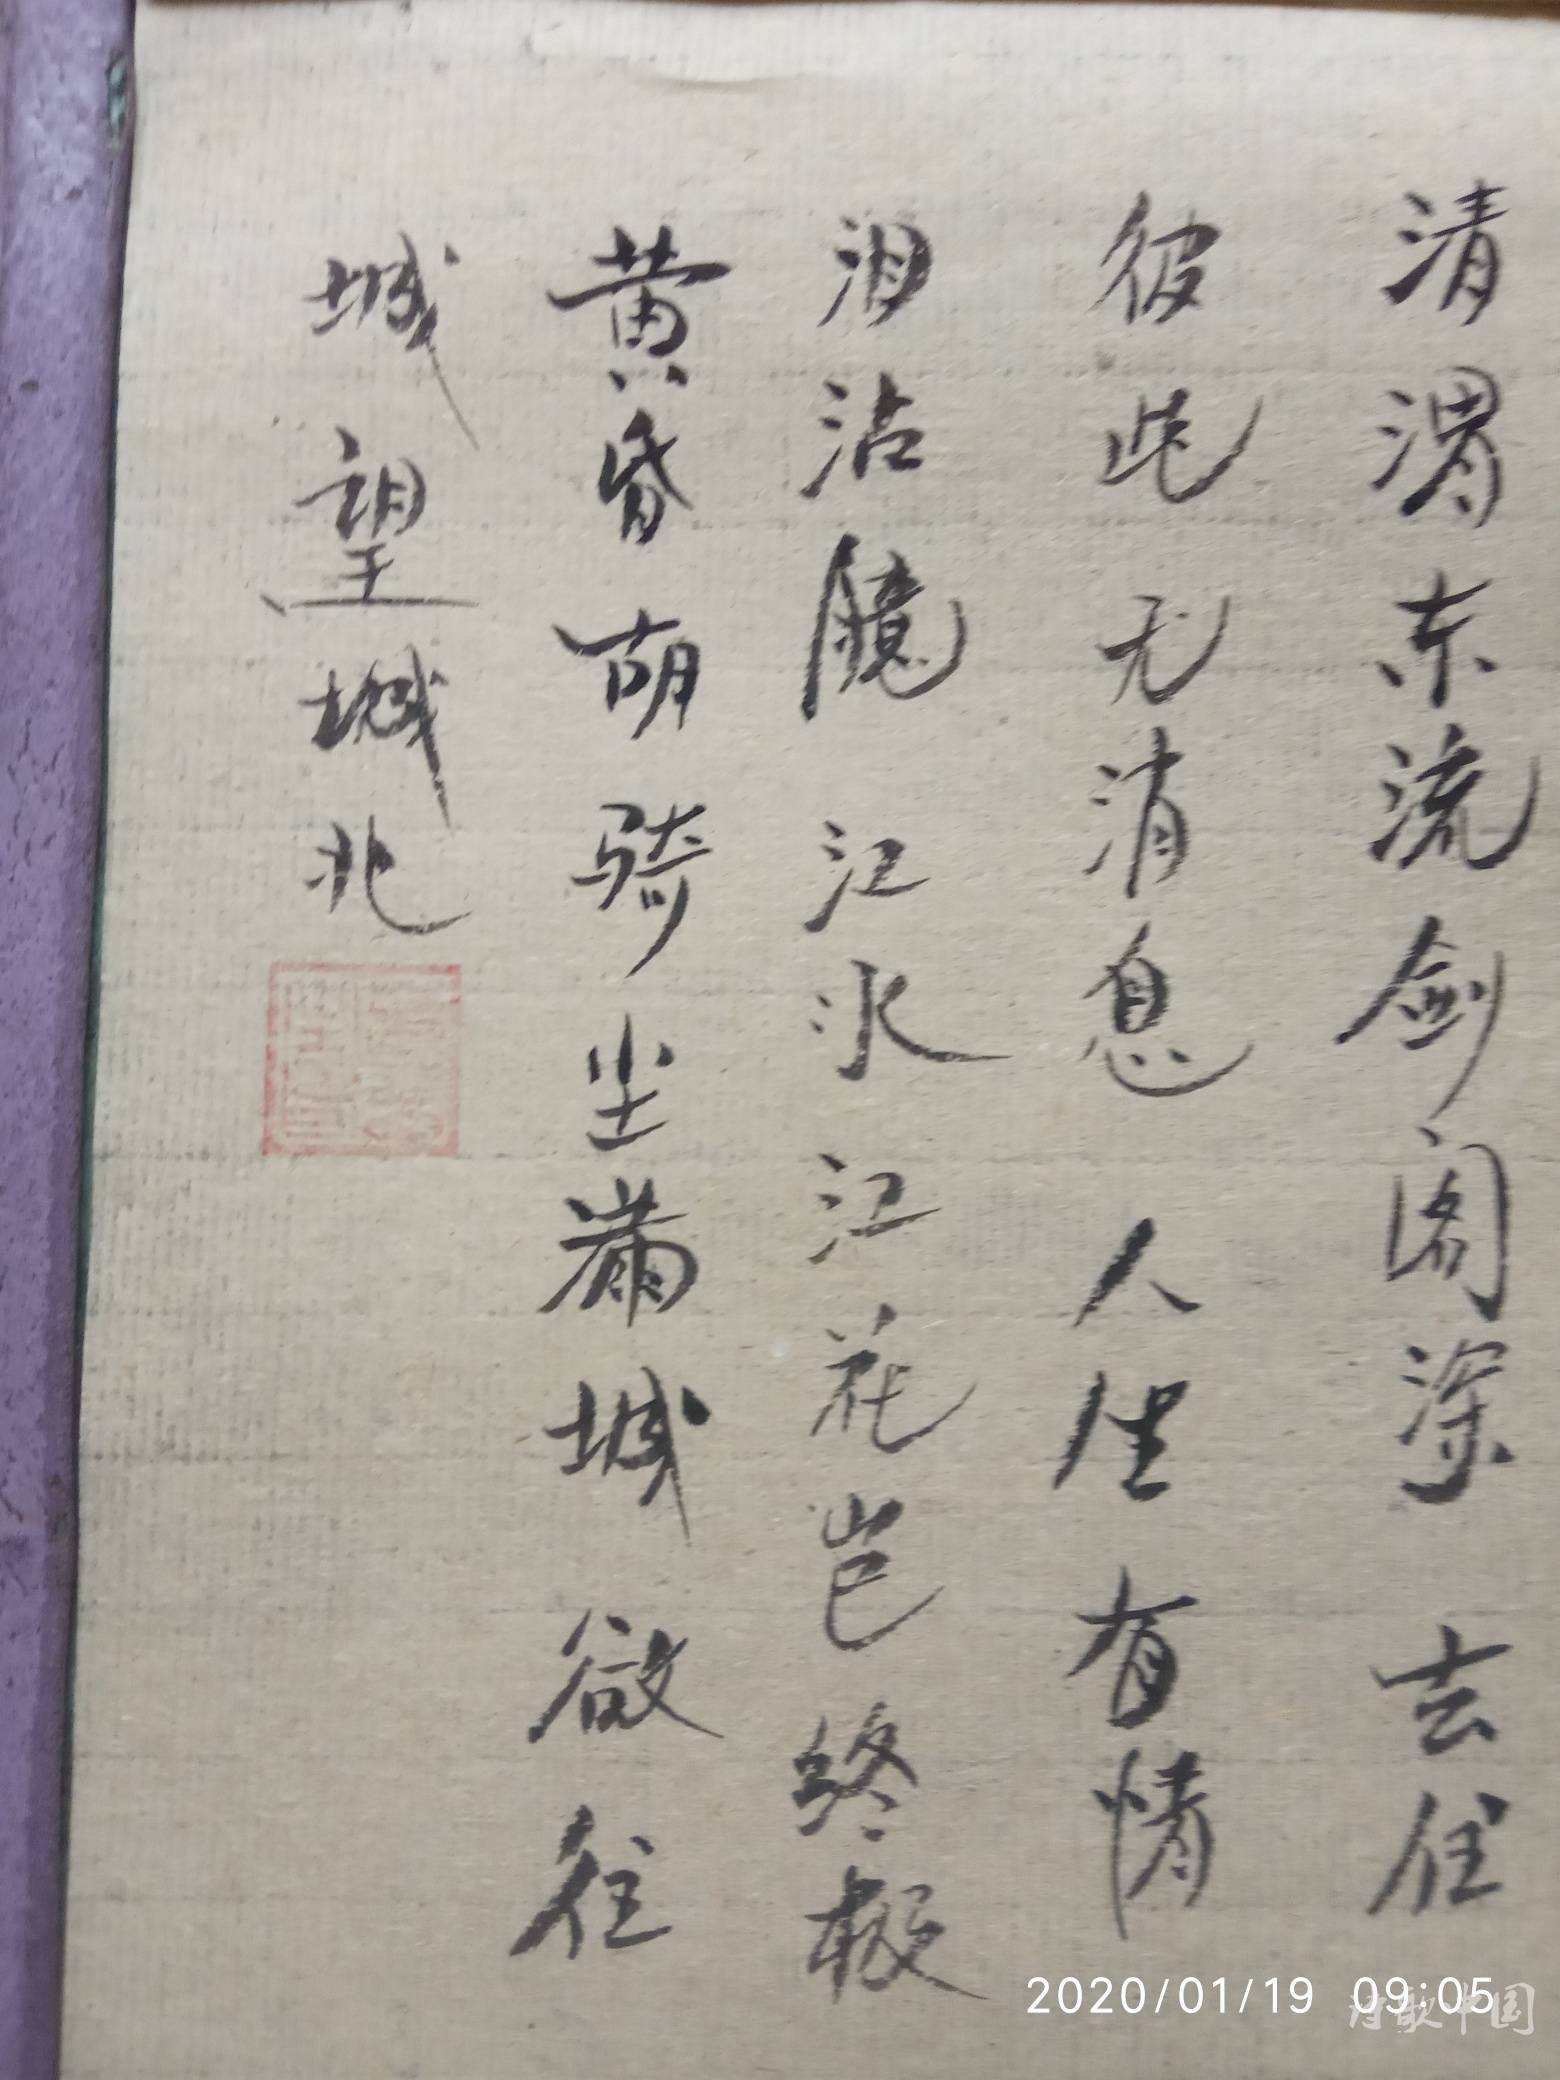 清渭东流剑阁深去住
彼此无消息人生有情
泪沾臆江水江花岂终极
黄昏胡骑尘满城欲往
城望城北
2020/01/19 09:05
诗歌中国